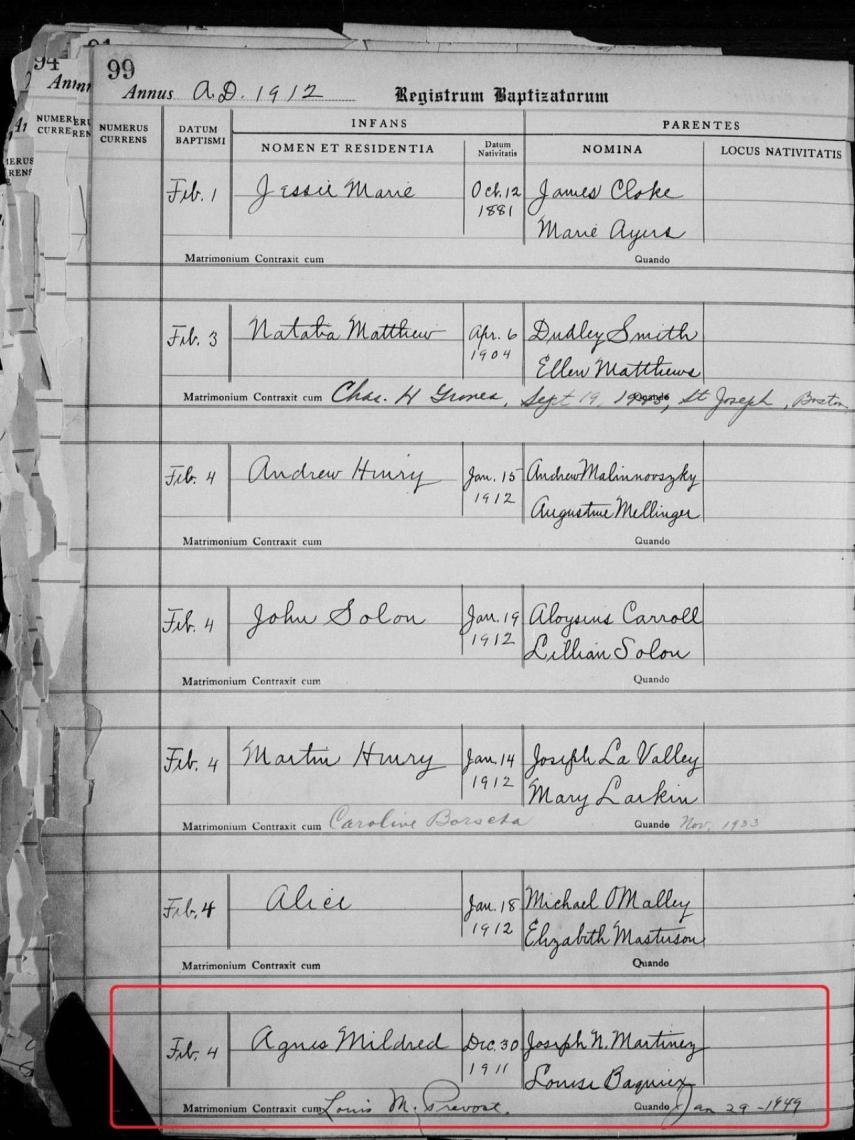 94
91
99
Annus A.D. 1912 Registrum Baptizatorum
NUMERUS CURRENS
DATUM BAPTISMI
INFANS
NOMEN ET RESIDENTIA
Datum Nativitatis
PARENTES
NOMINA
LOCUS NATIVITATIS
Feb. 1 Jessie Marie Oct. 12 James Cloke
1881 Marie Ayers
Matrimonium Contraxit cum Quando
Feb. 3 Matthew Apr. 6 Dudley Smith
1904 Ellen Matthews
Matrimonium Contraxit cum Chas. H Quando Sept 19, St Joseph, Boston
Feb. 4 Andrew Henry Jan. 15 Andrew Malinnovszky
1912 Augustine Mellinger
Matrimonium Contraxit cum Quando
Feb. 4 John Solon Jan. 19 Aloysius Carroll
1912 Lillian Solon
Matrimonium Contraxit cum Quando
Feb. 4 Martin Henry Jan. 14 Joseph La Valley
1912 Mary Larkin
Matrimonium Contraxit cum Caroline Quando Nov. 1933
Feb. 4 Alice Jan. 18 Michael O'Malley
1912 Elizabeth Masterson
Matrimonium Contraxit cum Quando
Feb. 4 Agnes Mildred Dec. 30 Joseph N. Martinez
1911 Louise
Matrimonium Contraxit cum Louis M. Prevost. Quando Jan 29 - 1949